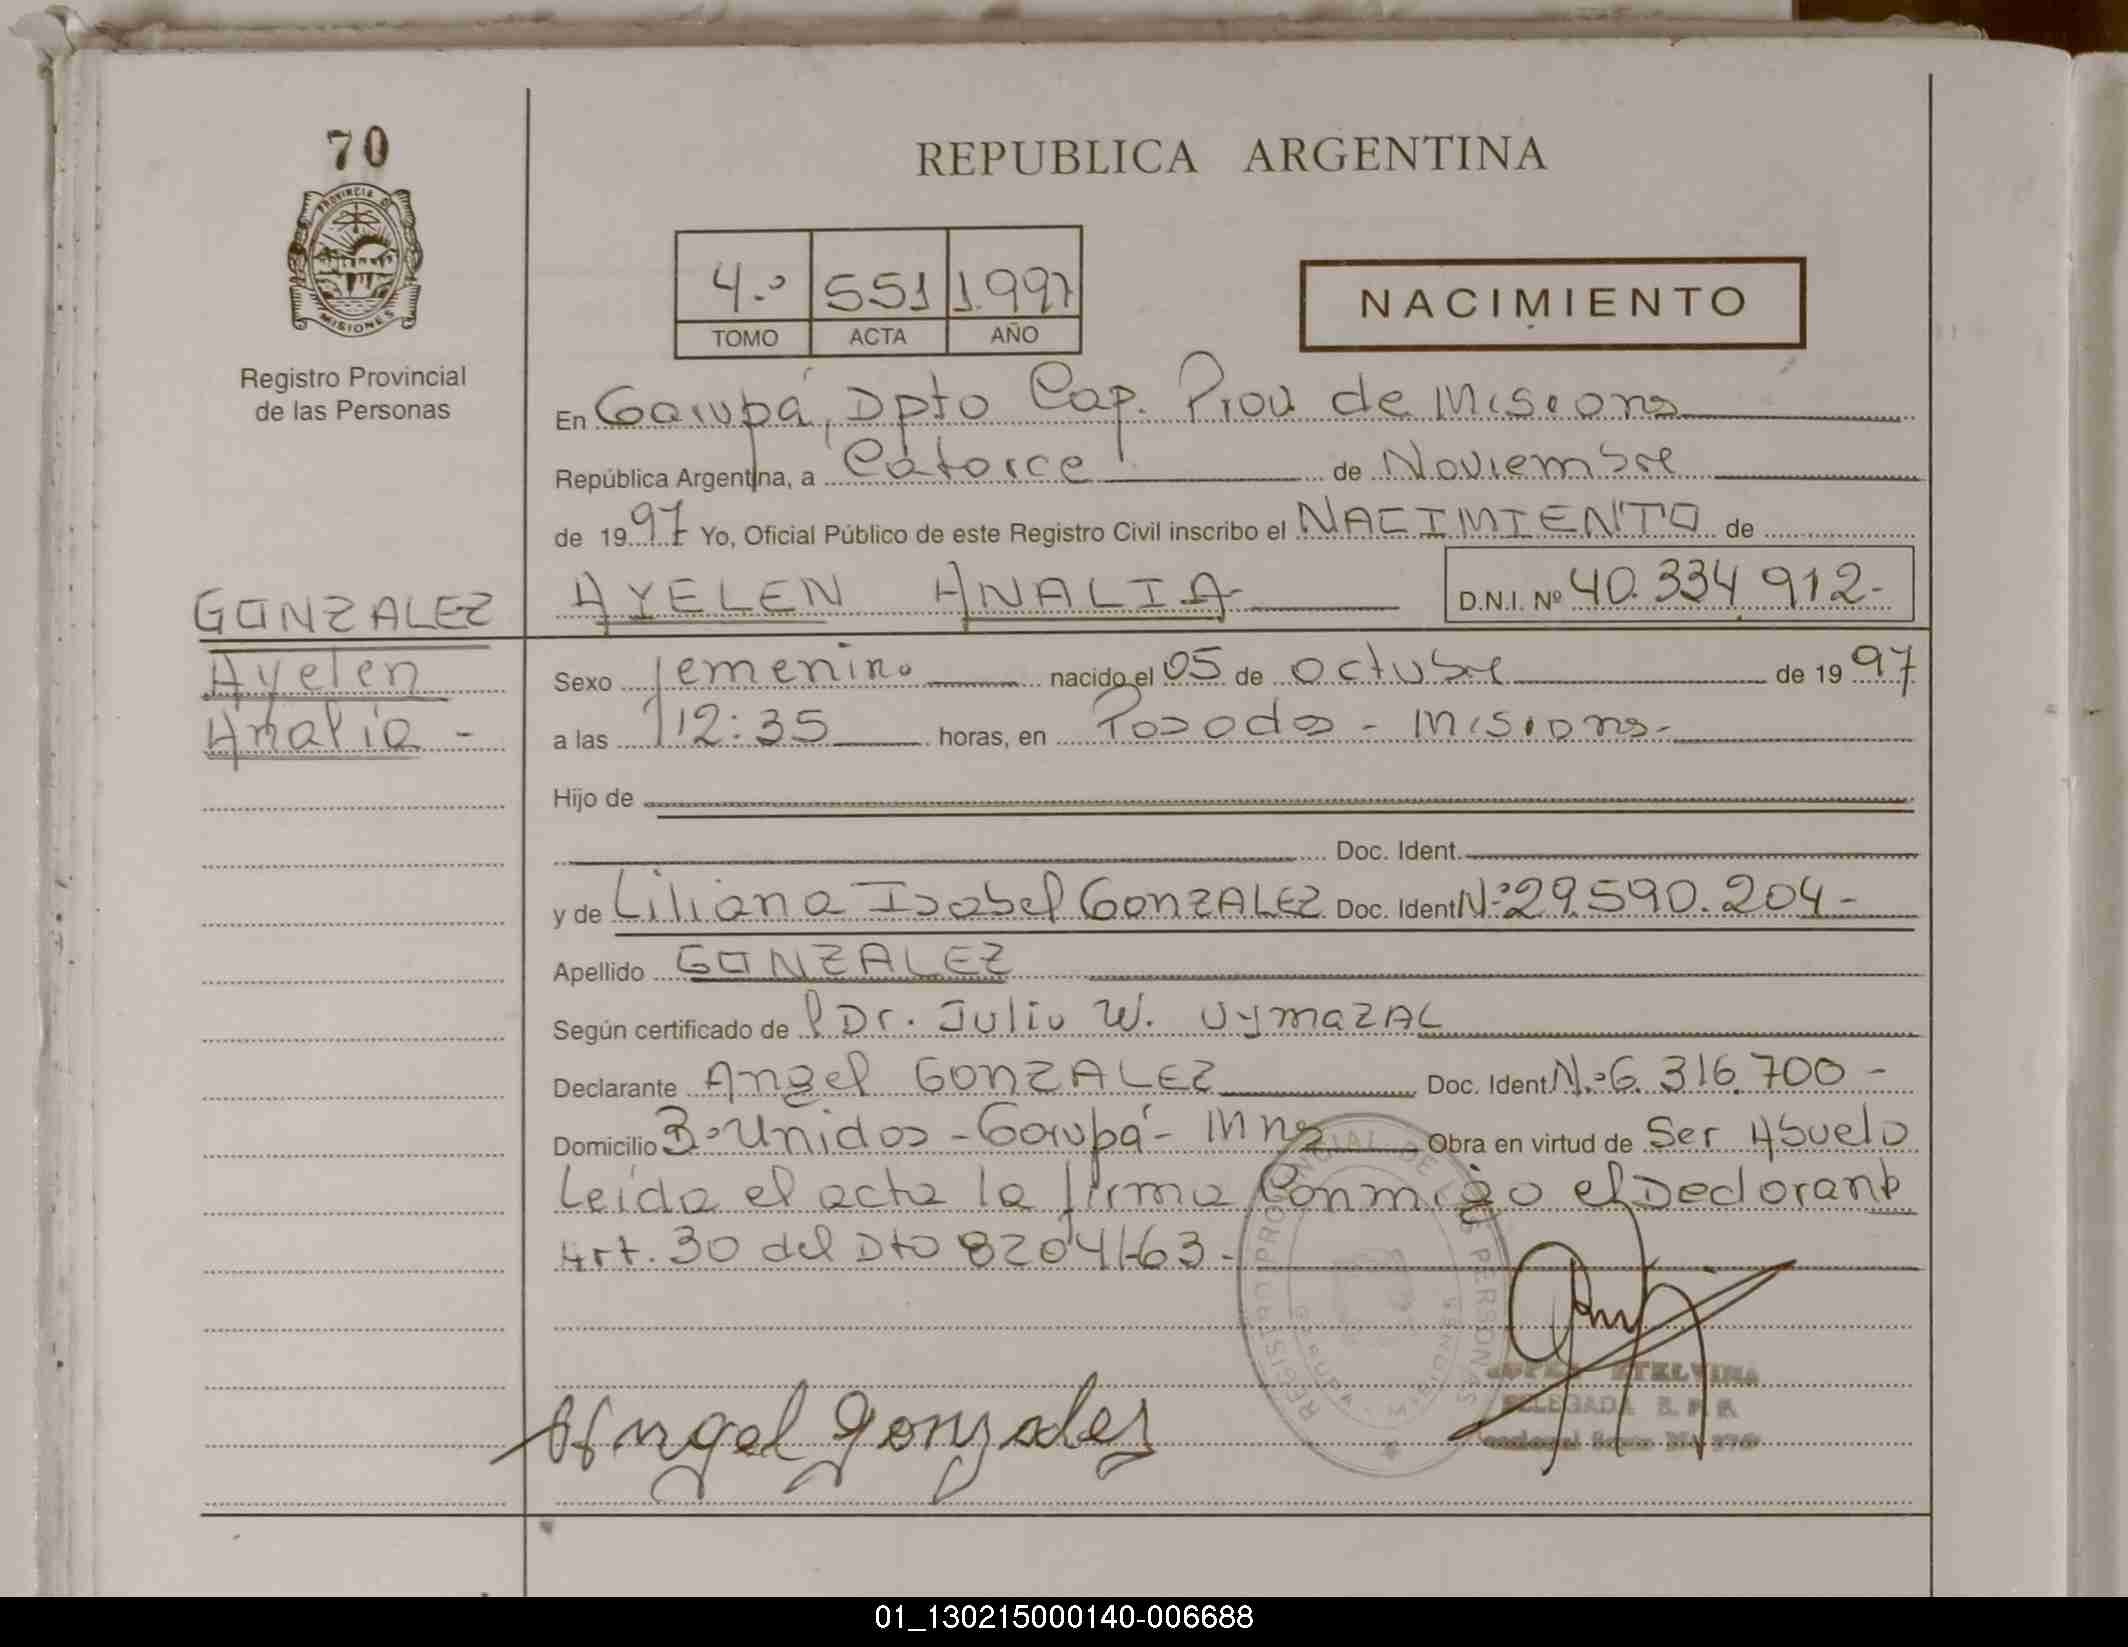 70
PROVINCIA DE
MISIONES
Registro Provincial
de las Personas
REPUBLICA ARGENTINA
4.º 551 1.997
TOMO ACTA AÑO
NACIMIENTO
En Garupá, Dpto Cap. Prov de Misions
República Argentina, a Catorce de Noviembre
de 1997 Yo, Oficial Público de este Registro Civil inscribo el NACIMIENTO de
GONZALEZ AYELEN ANALIA D.N.I. Nº 40.334.912-
Ayelen
Analia -
Sexo femenino nacido el 05 de octubre de 1997
a las 12:35 horas, en Posadas - Misions-
Hijo de
Doc. Ident.
y de Liliana Isabel GONZALEZ Doc. Ident Nº 29.590.204-
Apellido GONZALEZ
Según certificado de Dr. Julio W. Uymazal
Declarante Angel GONZALEZ Doc. Ident N.º 6.316.700 -
Domicilio Bº Unidos - Garupá - Mns Obra en virtud de Ser Abuelo
Leída el acta la firma Conmigo el Declarant
Art. 30 del Dto 8204/63-
REGISTRO PROVINCIAL DE LAS PERSONAS
Angel Gonzalez
ETELVINA
DELEGADA R. P. P.
01_130215000140-006688